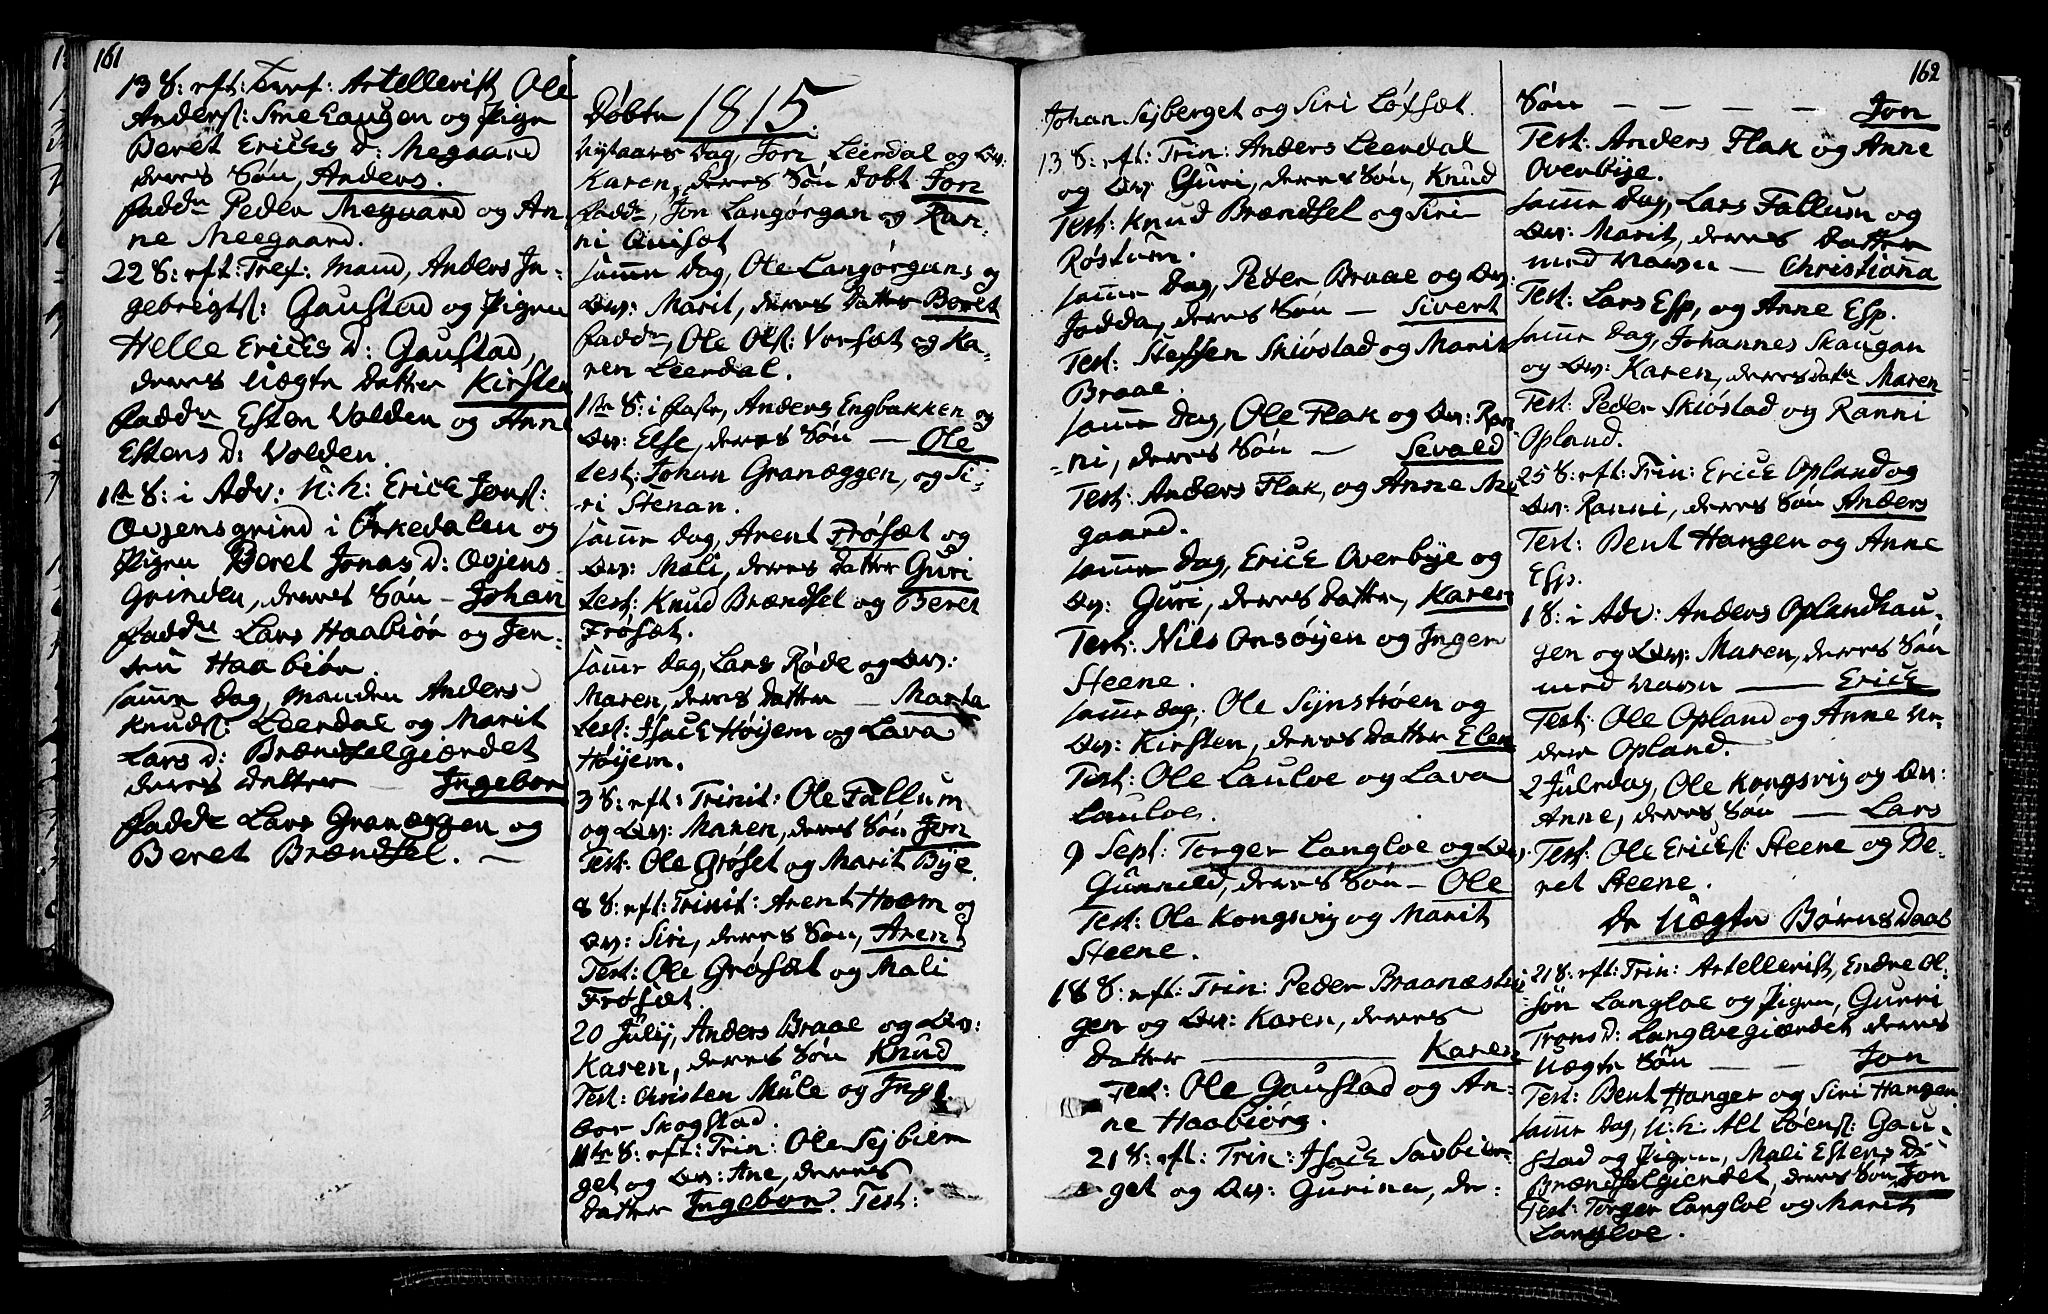 161
13 S: eft: Tref: Artellerist Ole
Anders: Smehaugen og Pige
Beret Erichs D: Megaard
deres Søn, Anders.
fadde Peder Megaard og An-
ne Meegaard.
22 S: eft: Tref: Mand, Anders In-
gebrigts: Gaustad og Pigen
Helle Erichs D: Gaustad,
deres Uægte datter Kirsten
fadde Esten Volden og Anne
Estens D: Volden.
1te S: i Adv: U: k: Erick Jons:
Ovjensgrind i Orkedalen og
Pigen Beret Jonas D: Ovjens
Grinden, deres Søn - Johan
fadde Lars Haabiør og Jen-
sen Haabiør.
samme dag, Manden Anders
Knuds: Leerdal og Marit
Lars D: Brændselgiærdet
deres datter - Ingebor
fadde Lars Granæggen og
Beret Brændsel. -
Døbte 1815.
Nytaars dag, Jon Leerdal og Qv:
Karen, deres Søn døbt Jon
fadde, Jon Langørgan og Ran-
ni Quisæt
samme dag, Ole Langørgans og
Qv: Marit, deres datter Beret
fadde, Ole Ols: Vorsæt og Ka-
ren Leerdal.
1te S: i faste, Anders Engbakken og
Qv: Else, deres Søn - Ole
test: Johan Granæggen, og Si-
ri Stenan.
samme dag, Arent Frøsæt og
Qv: Mali, deres datter Guri
Test: Knud Brændsel og Beret
Frøsæt.
samme dag, Lars Røde og Qv:
Maren, deres datter - Marta
test: Isack Høyem og Lava
Høyem.
3 S: eft: Trinit: Ole Fallum
og Qv: Maren, deres Søn Jon
Test: Ole Grøset og Marit Bye
8 S: eft: Trinit: Arent Hoem og
Qv: Siri, deres Søn, Arent
Test: Ole Grøsæt og Mali
Frøsæt.
20 July, Anders Braae og Qv:
Karen, deres Søn Knud
Test: Christen Mule og Inge
bor Skogstad.
11te S: eft: Trin: Ole Sejbier
get og Qv: Ane, deres
datter Ingebor. Test:
162
Johan Sejberget og Siri Løfsæt.
13 S: eft: Trin: Anders Leerdal
og Qv: Guri, deres Søn, Knud
Test: Knud Brændsel og Siri
Røstum.
samme Dag, Peder Braae og Qv:
Jodda, deres Søn - Sivert
Test: Steffen Skiøstad og Marit
Braae.
samme Dag, Ole Flak og Qv: Ran
-ni, deres Søn - Sevald
Test: Anders Flak, og Anne Me
gaard.
samme Dag, Erick Overbye og
Qv: Guri, deres datter, Karen
Test: Nils Onsøyen og Inger
Steene.
samme dag, Ole Synstrøen og
Qv: Kirsten, deres datter Elen
Test: Ole Lauloe og Lava
Lauloe.
9 Sept: Torger Langloe og Qv:
Gunnild, deres Søn - Ole
Test: Ole Kongsvig og Marit
Steene.
18 S: eft: Trin: Peder Braanæstei
gen og Qv: Karen, deres
datter - Karen
Test: Ole Gaustad og An-
ne Haabiørg.
21 S: eft: Trin: Isack Sæbier-
get og Qv: Gurina, de-
Søn - - - - Jon
Test: Anders Flak og Anne
Overbye.
samme Dag, Lars Fallum og
Qv: Marit, deres datter
med navn - Christiana
Test: Lars Esp, og Anne Esp.
samme dag, Johannes Skaugan
og Qv: Karen, deres datr Maren
Test: Peder Skiøstad og Ranni
Opland.
25 S: eft: Trin: Erick Opland og
Qv: Ranni, deres Søn Anders
Test: Bent Hangen og Anne
Esp.
1 S: i Adv: Anders Oplandhau-
gen og Qv: Maren, deres Søn
med navn - Erick
Test: Ole Opland og Anne Ne-
dre Opland.
2 Juledag, Ole Kongsvig og Qv:
Anne, deres Søn - Lars
Test: Ole Ericks: Steene og Be-
ret Steene.
De Uægte Børns Daab
21 S: eft: Trin: Artellerist, Endre Ol-
søn Langloe og Pigen, Gurri
Trons D: Langloegiærdet deres
Uægte Søn - - Jon
Test: Bent Hanger og Siri Hangan
samme dag, U: k: Alt Løens: Gau-
stad og Pigen, Mali Estens D:
Brændselgierdet, deres Søn Jon
Test: Torger Langloe og Marit
Langloe.